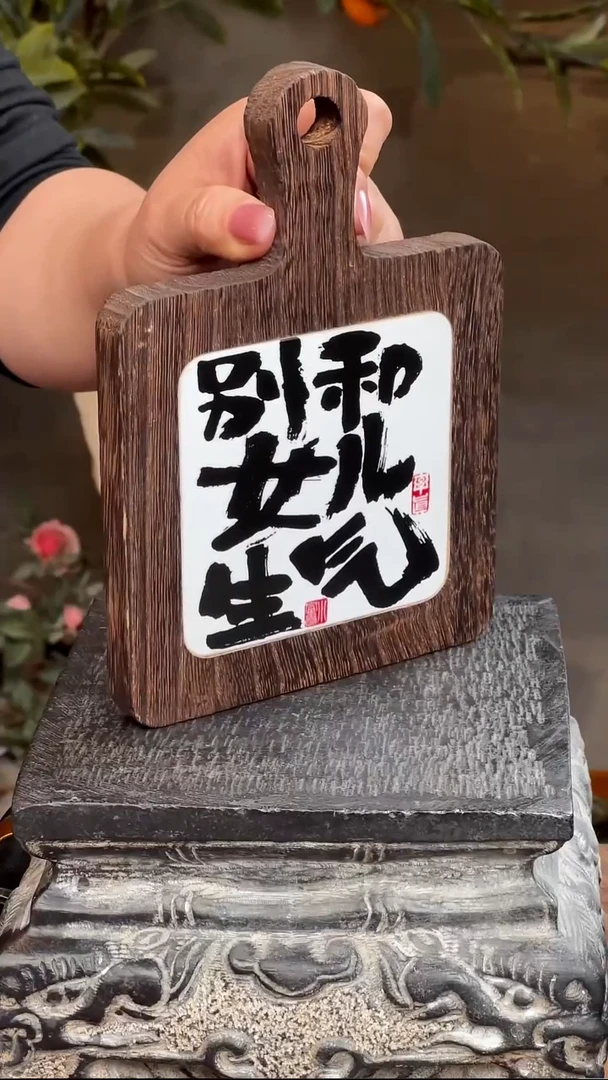 别和
女儿
生气